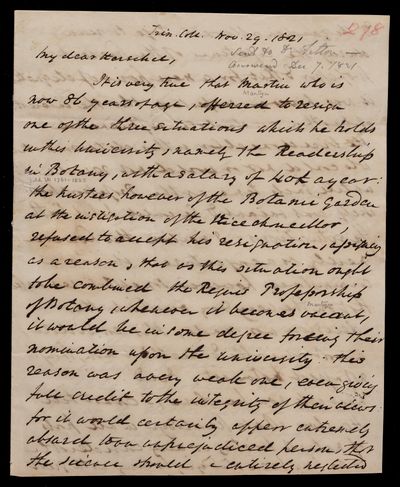 Trin. Coll. Nov. 29. 1821
298
Send to Dr
Answered Dec 7. 1821
My dear Herschel,
It is very true that Martin who is
now 86 years of age, offered to resign
Martyn
one of the three situations which he holds
in this University, namely the Readership
in Botany, with a salary of a year:
the trustees however of the Botanic Garden
at the instigation of the Vice chancellor,
refused to accept his resignation, assigning
as a reason, that as this situation ought
to be combined the Regius Professorship
Martyn's
of Botany, whenever it becomes vacant,
it would be in some degree forcing their
nomination upon the university. This
reason was a very weak one, even giving
full credit to the integrity of their views:
for it would certainly appear extremely
absurd to an unprejudiced person, that
the science should be entirely neglected